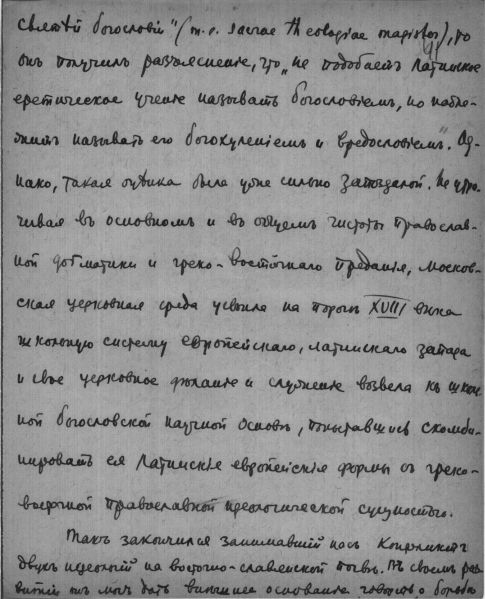 святѣй богословіи" (т. е. sacrae theologiae magister), то
онъ получилъ разъясненіе, что „не подобаетъ латинское
еретическое ученіе называть богословіемъ, но надле-
житъ называть его богохуленіемъ и вредословіемъ". Од-
нако, такая оцѣнка была уже сильно запоздалой. Не утра-
чивая въ основномъ и въ общемъ чистоты православ-
ной догматики и греко-восточнаго преданія, москов-
ская церковная среда усвоила на порогѣ XVIII вѣка
школьную систему европейскаго, латинскаго
и свое церковное и служеніе возвела къ школь-
ной богословской научной основѣ, попытавшись скомби-
нировать ея латинскіе европейскіе формы съ греко-
восточной православной идеологической сущностью.
Такъ закончился занимавшій насъ конфликтъ
двухъ идеологій на восточно-славянской почвѣ. Въ своемъ раз-
витіи онъ дать внѣшнее основаніе говорить о борьбѣ